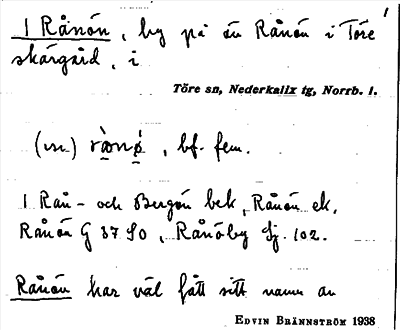 1 Rånön, by på ön Rånön i Töre
skärgård, i
Töre sn, Nederkalix tg, Norrb. l.
(un.) rònǿ, bf. fem.
1 Rån- och Bergön bek, Rånön ek,
Rånön G 37 SO, Rånöby Sj. 102.
Rånön har väl fått sitt namn av
EDVIN BRÄNNSTRÖM 1938